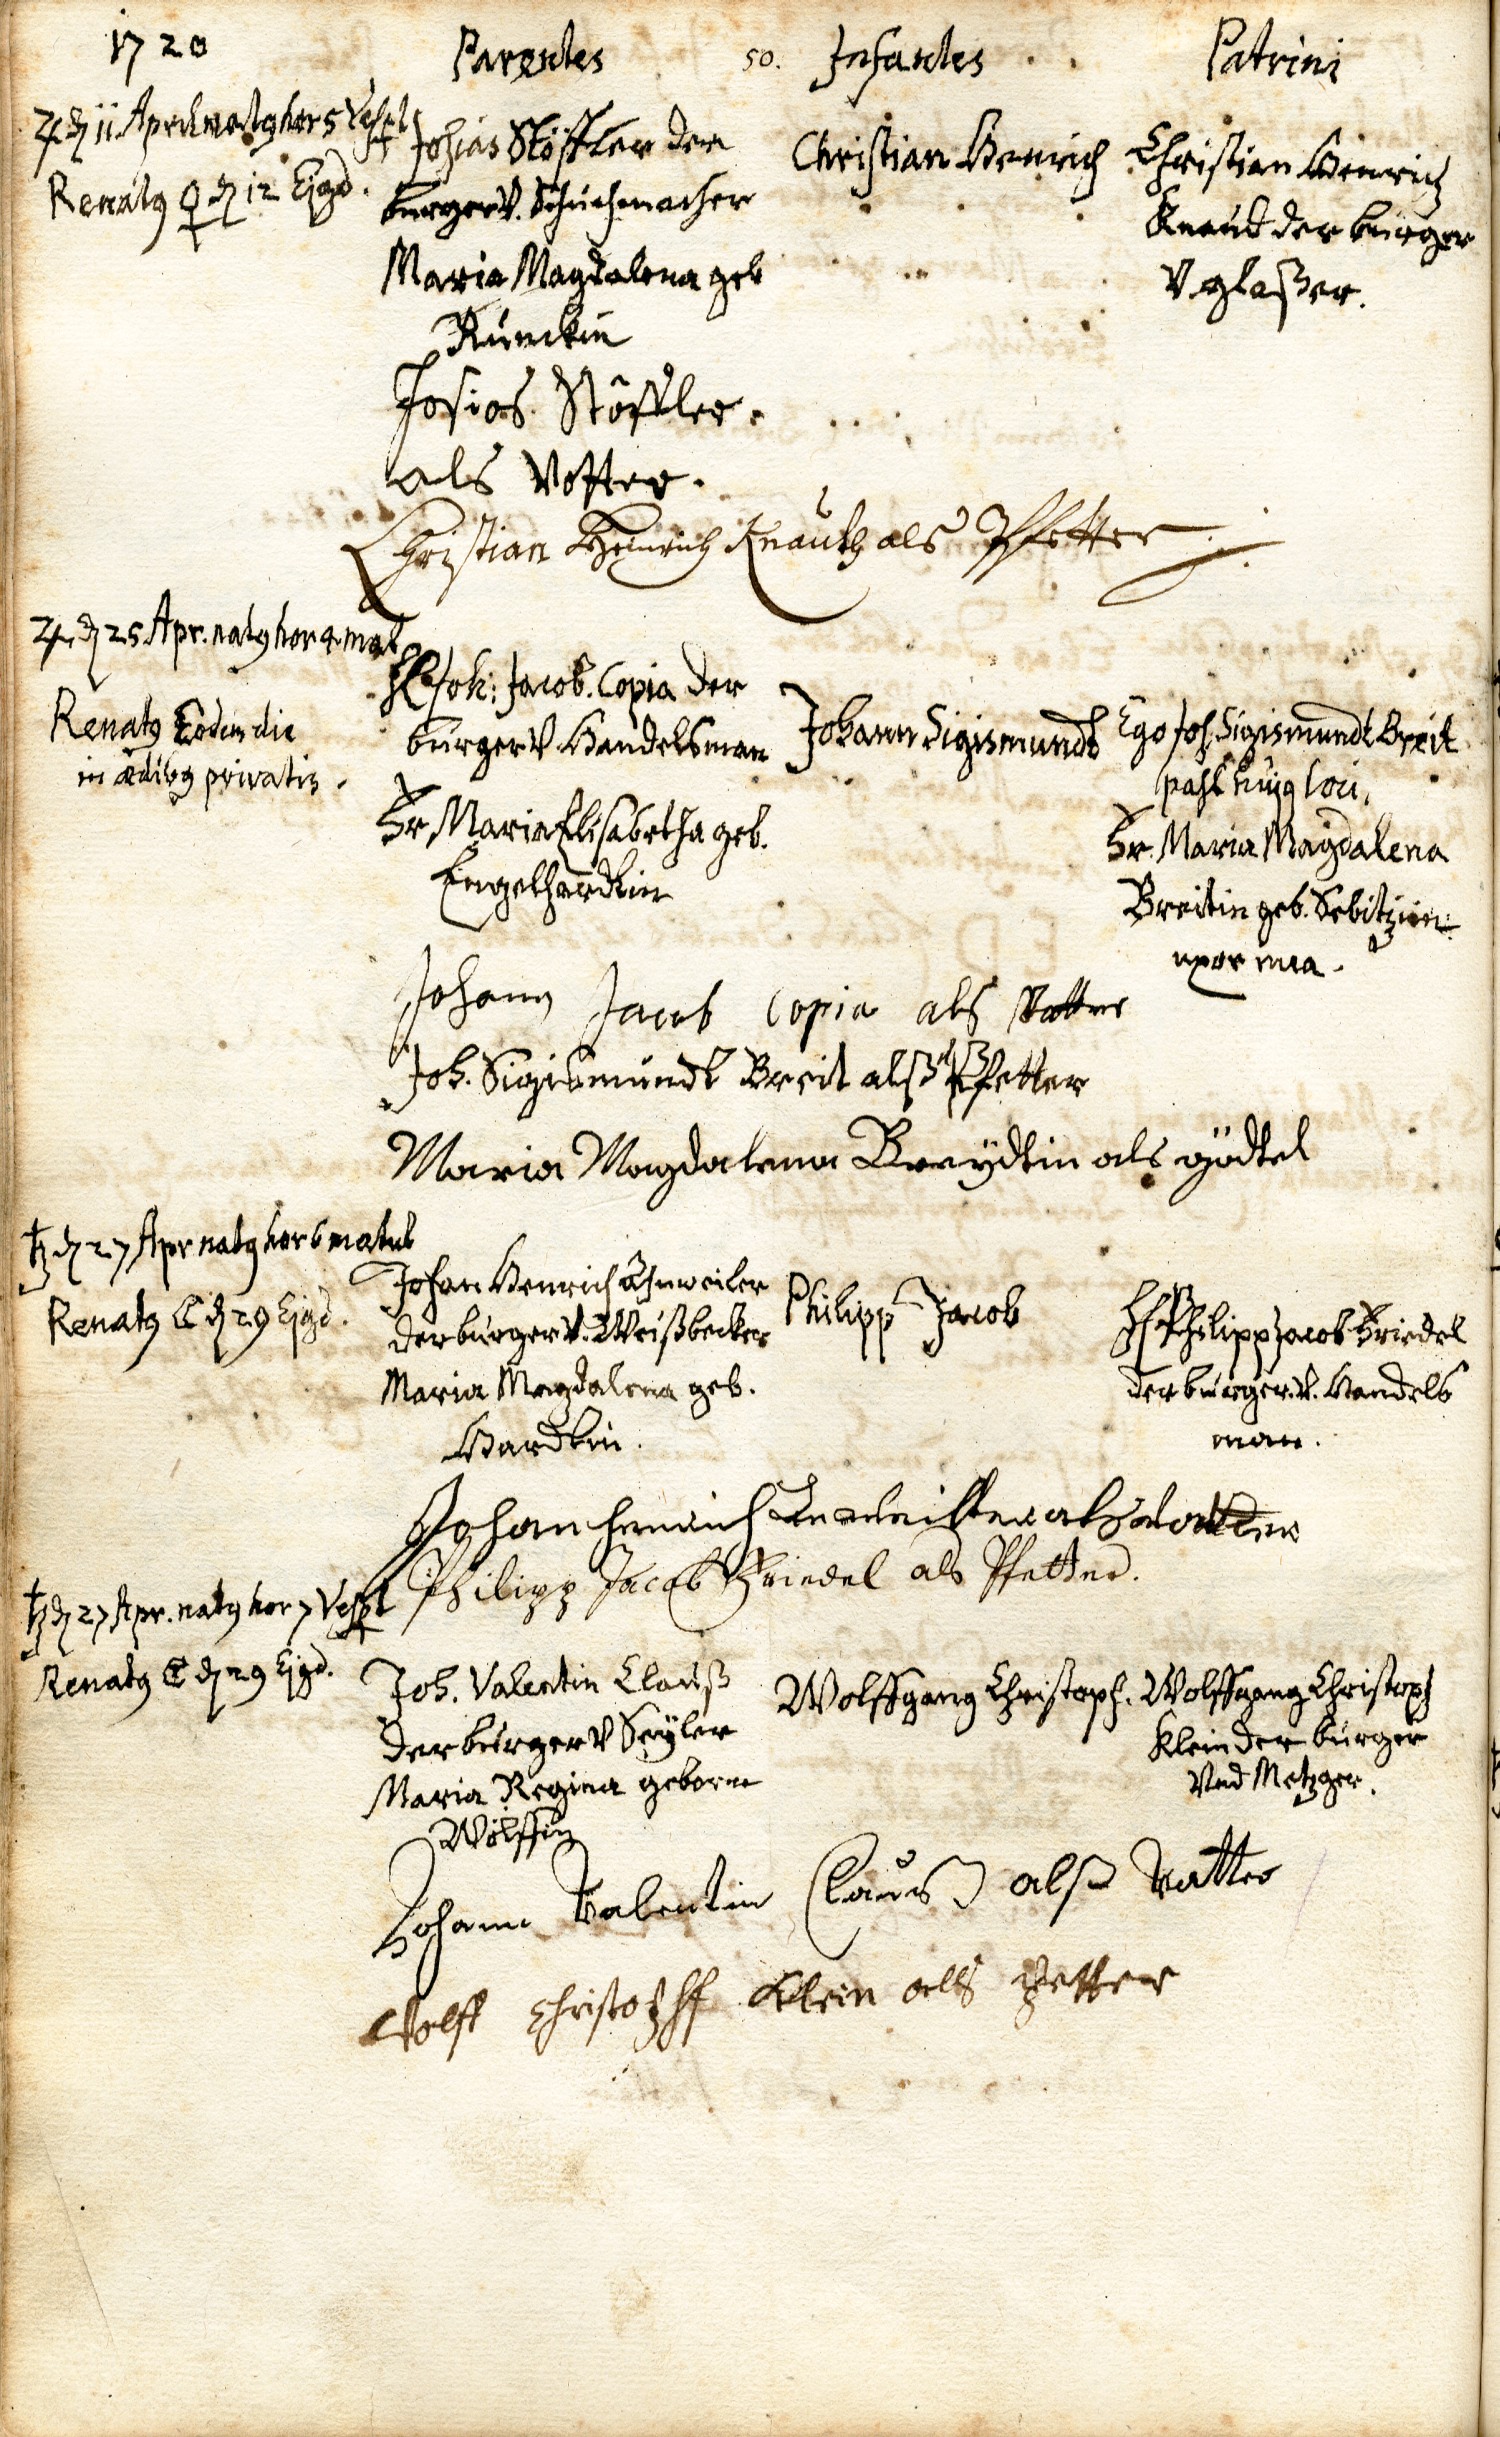 1720
Parentes
50.
Infantes
Patrini
♃ d 11. April natg hor 5 Vesp
Renatg ♀ d 12 Ejgd.
Josias Stöffler der
burger V. Schuhmacher
Maria Magdalena geb
Runckin
Christian Henrich
Christian Henrich
Knaut der burger
V. glaßer.
Josias Stöffler.
als Vatter.
Christian Heinrich Knauth als Pfetter
♃ d 25 Apr. natg hor 4 mat
Renatg Eodem die
in ædibg privatis.
H. Joh: Jacob. Copia der
burger V Handelsman
Fr. Maria Elisabetha geb.
Engelhardtin
Johann Sigismundt
Ego Joh. Sigismundt Breit
past hujg loci,
Fr. Maria Magdalena
Breitin geb. Sebitzin
uxor mea.
Johann Jacob Copia als Vatter
Joh. Sigismundt Breit alß Pfetter
Maria Magdalena Breÿdtin als gödtel
♄ d 27 Apr natg hor 6 matut
Renatg ☾ d 29 Ejgd.
Johan Henrich
der burger V. Weißbecker
Maria Magdalena geb.
Hardtin.
Philipp Jacob
H Philipp Jacob Friedel
der burger. V. Handels
man.
Johan Henrich als vatter
Philipp Jacob Friedel als Pfetter.
♄ d 27 Apr. natg hor 7 Vesp
Renatg ☾ d 29 Ejgd.
Joh. Valentin Clauß
der burger V Seÿler
Maria Regina geborne
Wolffin
Wolffgang Christoph.
Wolffgang Christoph
Klein der burger
Vnd Metzger.
Johann Valentin Clauß alß Vatter
Wolff Christophff Klein als Petter